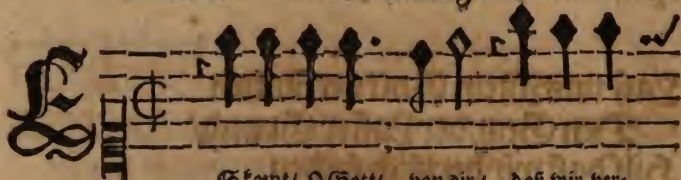 ES kompt/ O Gott/ von dir/ daß wir ver-